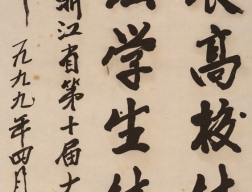 高校
学生
浙江省第十届大
一九九九年四月